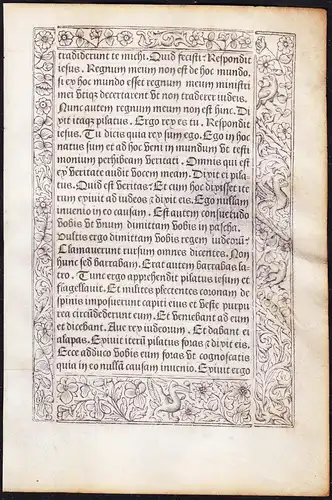 tradiderunt te michi. Quid fecisti? Respondit
iesus. Regnum meum non est de hoc mundo.
si ex hoc mundo esset regnum meum ministri
mei vtiq̃ decertarent vt non traderer iudeis.
Nunc autem regnum meum non est hinc. Di
xit itaq̃ pilatus. Ergo rex es tu. Respondit
iesus. Tu dicis quia rex sum ego. Ego in hoc
natus sum et ad hoc veni in mundum vt testi
monium perhibeam veritati. Omnis qui est
ex veritate audit vocem meam. Dixit ei pila
tus. Quid est veritas? Et cum hoc dixisset ite
rum exiuit ad iudeos ⁊ dixit eis. Ego nullam
inuenio in eo causam. Est autem consuetudo
vobis vt vnum dimittam vobis in pascha.
Vultis ergo dimittam vobis regem iudeorũ?
Clamauerunt rursum omnes dicentes. Non
hunc sed barrabam. Erat autem barrabas la
tro. Tunc ergo apprehendit pilatus iesum et
flagellauit. Et milites plectentes coronam de
spinis imposuerunt capiti eius et veste purpu
rea circũdederunt eum. Et veniebant ad eum
et dicebant. Aue rex iudeorum. Et dabant ei
alapas. Exiuit iterũ pilatus foras ⁊ dixit eis.
Ecce adduco vobis eum foras vt cognoscatis
quia in eo nullã causam inuenio. Exiuit ergo